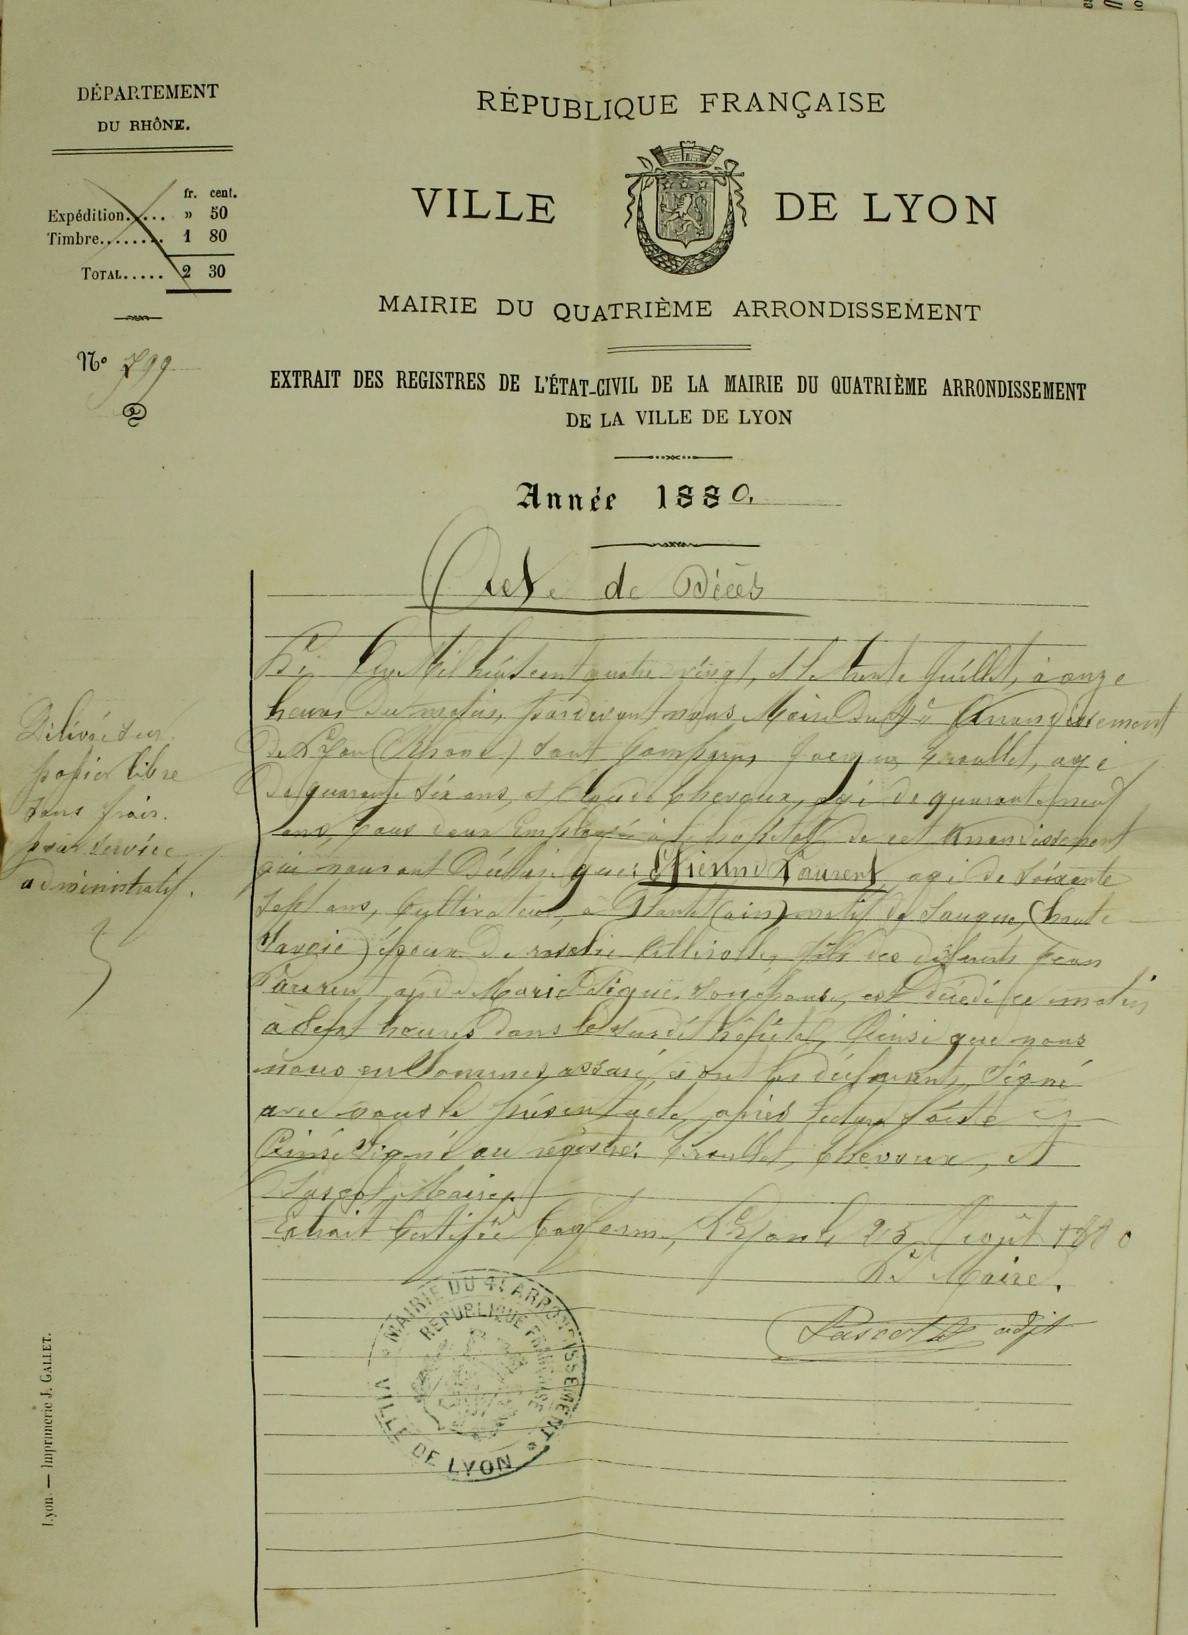 DÉPARTEMENT
DU RHÔNE.
fr. cent.
Expédition..... » 50
Timbre........ 1 80
TOTAL..... 2 30
N° 799
RÉPUBLIQUE FRANÇAISE
VILLE DE LYON
MAIRIE DU QUATRIÈME ARRONDISSEMENT
EXTRAIT DES REGISTRES DE L'ÉTAT-CIVIL DE LA MAIRIE DU QUATRIÈME ARRONDISSEMENT
DE LA VILLE DE LYON
Année 1880.
Acte de Décès
L'an Mil huit cent quatre vingt, et le trente Juillet, à onze
heures du matin, pardevant nous Maire du 4e Arrondissement
de Lyon (Rhône) sont comparus Jacques, agé
de quarante six ans, et Chevoux, agé de quarante neuf
ans, tous deux Employés à l'hôpital de cet Arrondissement
qui nous ont Déclaré que: Etienne Laurent, agé de soixante
sept ans, Cultivateur, à (ain) natif de (haute
Savoie) époux de fils des défunts Jean
Laurent et de Marie est décédé ce matin
à sept heures dans le susdit hôpital, Ainsi que nous
nous en sommes assuré, et ont les déclarants, Signé
avec nous le présent acte, après lecture faite
Ainsi Signé au registre: Chevoux, et
Pascot, Maire.
Extrait Certifié Conforme, Lyon le 25 Août 1880
Le Maire.
Pascot adjt
Délivré sur
papier libre
sans frais.
pour service
administratif.
MAIRIE DU 4e ARRONDISSEMENT
RÉPUBLIQUE FRANÇAISE
VILLE DE LYON
Lyon. — Imprimerie J. GALLET.